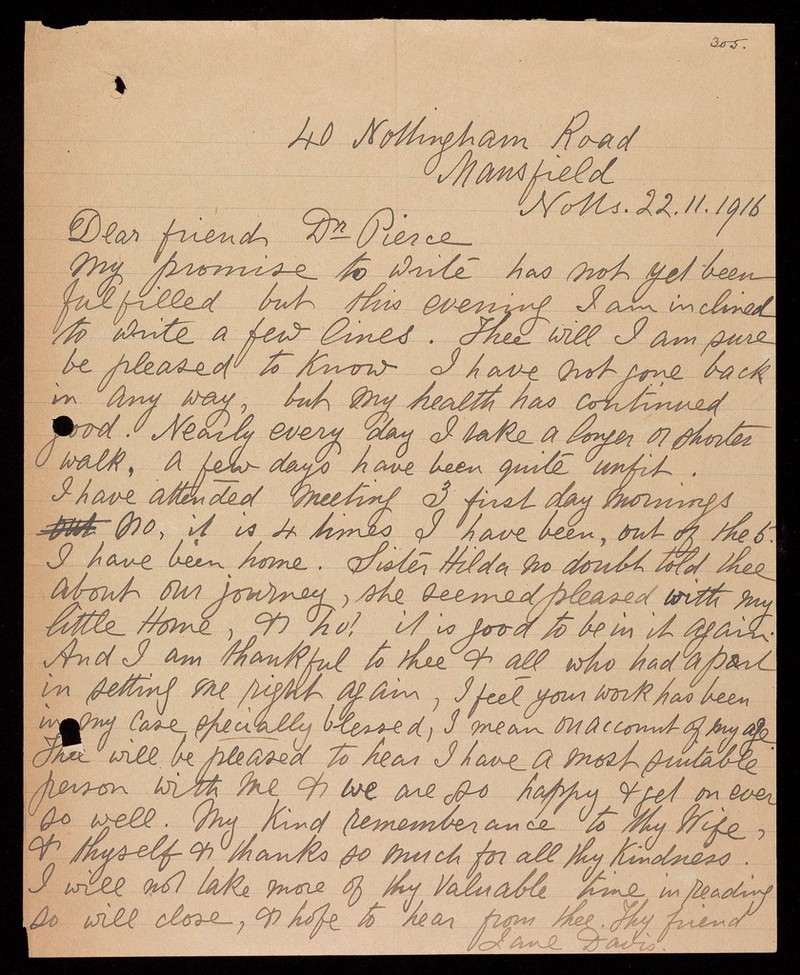 305.
40 Nottingham Road
Mansfield
Notts. 22.11.1916
Dear friend Dr Pierce
My promise to write has not yet been
fulfilled but this evening I am inclined
to write a few lines. Thee will I am sure
be pleased to know I have not gone back
in any way, but my health has continued
good. Nearly every day I take a longer or shorter
walk, a few days have been quite unfit.
I have attended Meeting 3 first day mornings
but no, it is 4 times I have been, out of the 5.
I have been home. Sister Hilda no doubt told thee
about our journey, she seemed pleased with my
little Home, & ho! it is good to be in it again.
And I am thankful to thee & all who had apart
in setting me right again, I feel your work has been
in my case specially blessed, I mean on account of my age
Thee will be pleased to hear I have a most suitable
person with me & we are so happy & get on ever
so well. My Kind rememberance to thy Wife,
& thyself & thanks so much for all thy Kindness.
I will not take more of thy valuable time in reading
so will close, & hope to hear from thee. Thy friend
Jane Davis.